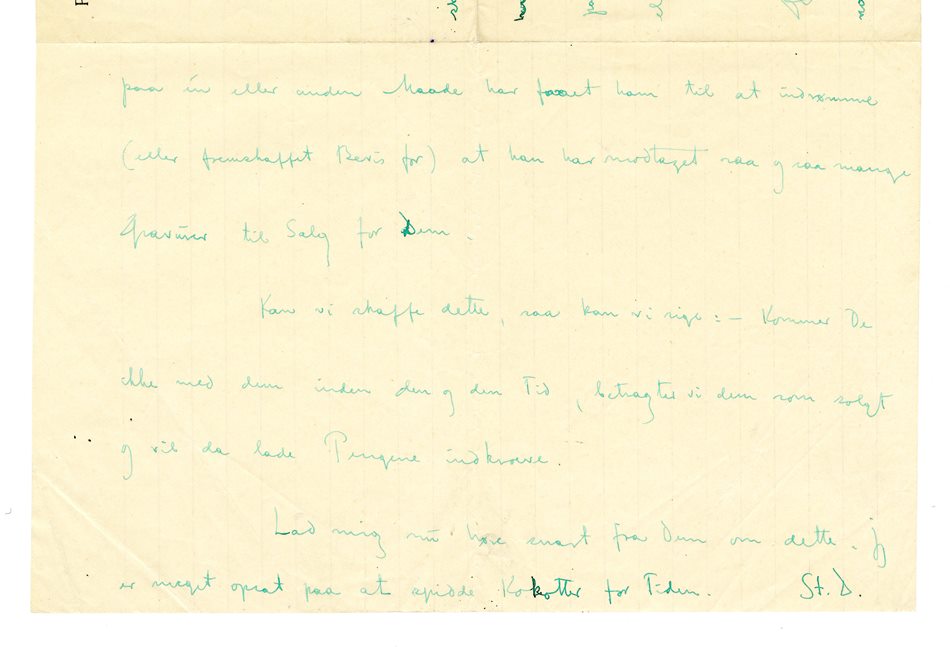 paa én eller anden Maade har faaet ham til at indrømme
(eller fremskaffet Bevis for) at han har modtaget saa og saa mange
Gravurer til Salg for Dem.
Kan vi skaffe dette, saa kan vi sige: – Kommer De
ikke med dem inden den og den Tid, betragter vi dem som solgt
og vil da lade Pengene indkræve.
Lad mig nu høre snart fra Dem om dette. Jeg
er meget opsat paa at spidde Kokotter for Tiden. St. D.